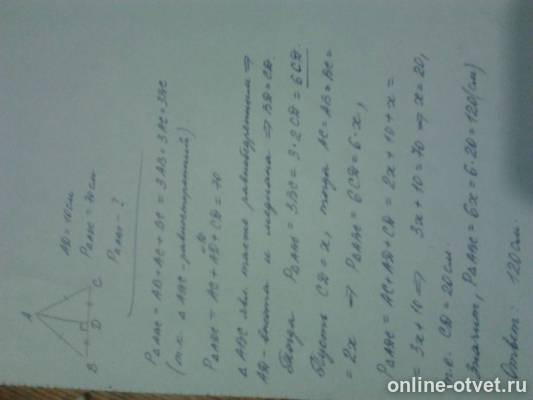 A
B D C
AD = 10 см
P△ADC = 70 см
P△ABC - ?
P△ABC = AB + AC + BC = 3AB = 3AC = 3BC
(т.к. △ABC - равносторонний).
P△ADC = AC + AD + CD = 70
△ABC явл. также равнобедренным ⇒
AD - высота и медиана ⇒ BD = CD.
Тогда P△ABC = 3BC = 3·2CD = 6CD.
Пусть CD = x, тогда AC = AB = BC =
= 2x ⇒ P△ABC = 6CD = 6·x,
P△ADC = AC + AD + CD = 2x + 10 + x =
= 3x + 10 ⇒ 3x + 10 = 70 ⇒ x = 20,
т.е. CD = 20 см.
Значит, P△ABC = 6x = 6·20 = 120 (см)
Ответ: 120 см.
online-otvet.ru